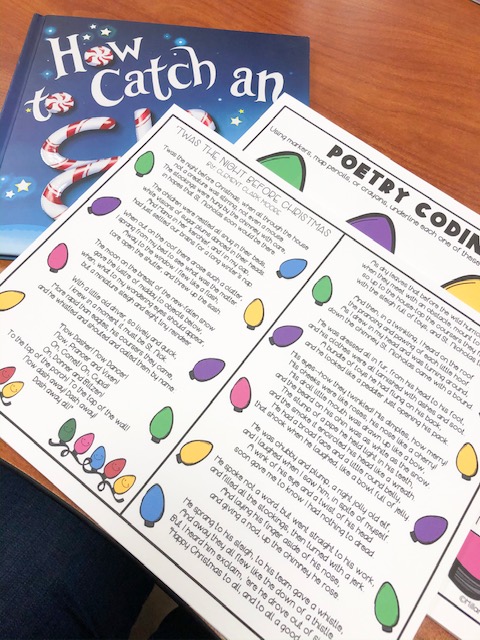 How
to Catch an
Elf
POETRY CODIN
Using markers, map pencils, or crayons, underline each one of these
'TWAS THE NIGHT BEFORE CHRISTMAS
BY CLEMENT CLARK MOORE
'Twas the night before Christmas, when all through the house
not a creature was stirring, not even a mouse.
The stockings were hung by the chimney with care,
in hopes that St. Nicholas soon would be there.
The children were nestled all snug in their beds,
while visions of sugar plums danced in their heads.
And Mama in her 'kerchief, and I in my cap,
had just settled our brains for a long winter's nap.
When out on the roof there arose such a clatter,
I sprang from my bed to see what was the matter.
Away to the window I flew like a flash,
tore open the shutter, and threw up the sash.
The moon on the breast of the new-fallen snow
gave the lustre of midday to objects below,
when, what to my wondering eyes should appear,
but a miniature sleigh and eight tiny reindeer.
With a little old driver, so lively and quick,
I knew in a moment it must be St. Nick.
More rapid than eagles, his coursers they came,
and he whistled and shouted and called them by name:
"Now Dasher! Now Dancer!
Now, Prancer and Vixen!
On, Comet! On, Cupid!
On, Donner and Blitzen!
To the top of the porch! To the top of the wall!
Now dash away! Dash away!
Dash away all!"
As dry leaves that before the wild hurricane
when they meet with an obstacle, mount to the
so up to the house-top the coursers they
with the sleigh full of toys, and St. Nicholas
And then, in a twinkling, I heard on the roof
the prancing and pawing of each little hoof.
As I drew in my head and was turning around,
down the chimney St. Nicholas came with a bound.
He was dressed all in fur, from his head to his foot,
and his clothes were all tarnished with ashes and soot.
A bundle of toys he had flung on his back,
and he looked like a peddler just opening his pack.
His eyes--how they twinkled! His dimples, how merry!
His cheeks were like roses, his nose like a cherry!
His droll little mouth was drawn up like a bow,
and the beard on his chin was as white as the snow.
The stump of a pipe he held tight in his teeth,
and the smoke it encircled his head like a wreath.
He had a broad face and a little round belly,
that shook when he laughed, like a bowl full of jelly.
He was chubby and plump, a right jolly old elf,
and I laughed when I saw him, in spite of myself.
A wink of his eye and a twist of his head
soon gave me to know I had nothing to dread.
He spoke not a word, but went straight to his work,
and filled all the stockings, then turned with a jerk.
And laying his finger aside of his nose,
and giving a nod, up the chimney he rose.
He sprang to his sleigh, to his team gave a whistle,
And away they all flew like the down of a thistle.
But I heard him exclaim, 'ere he drove out of
"Happy Christmas to all, and to all a good